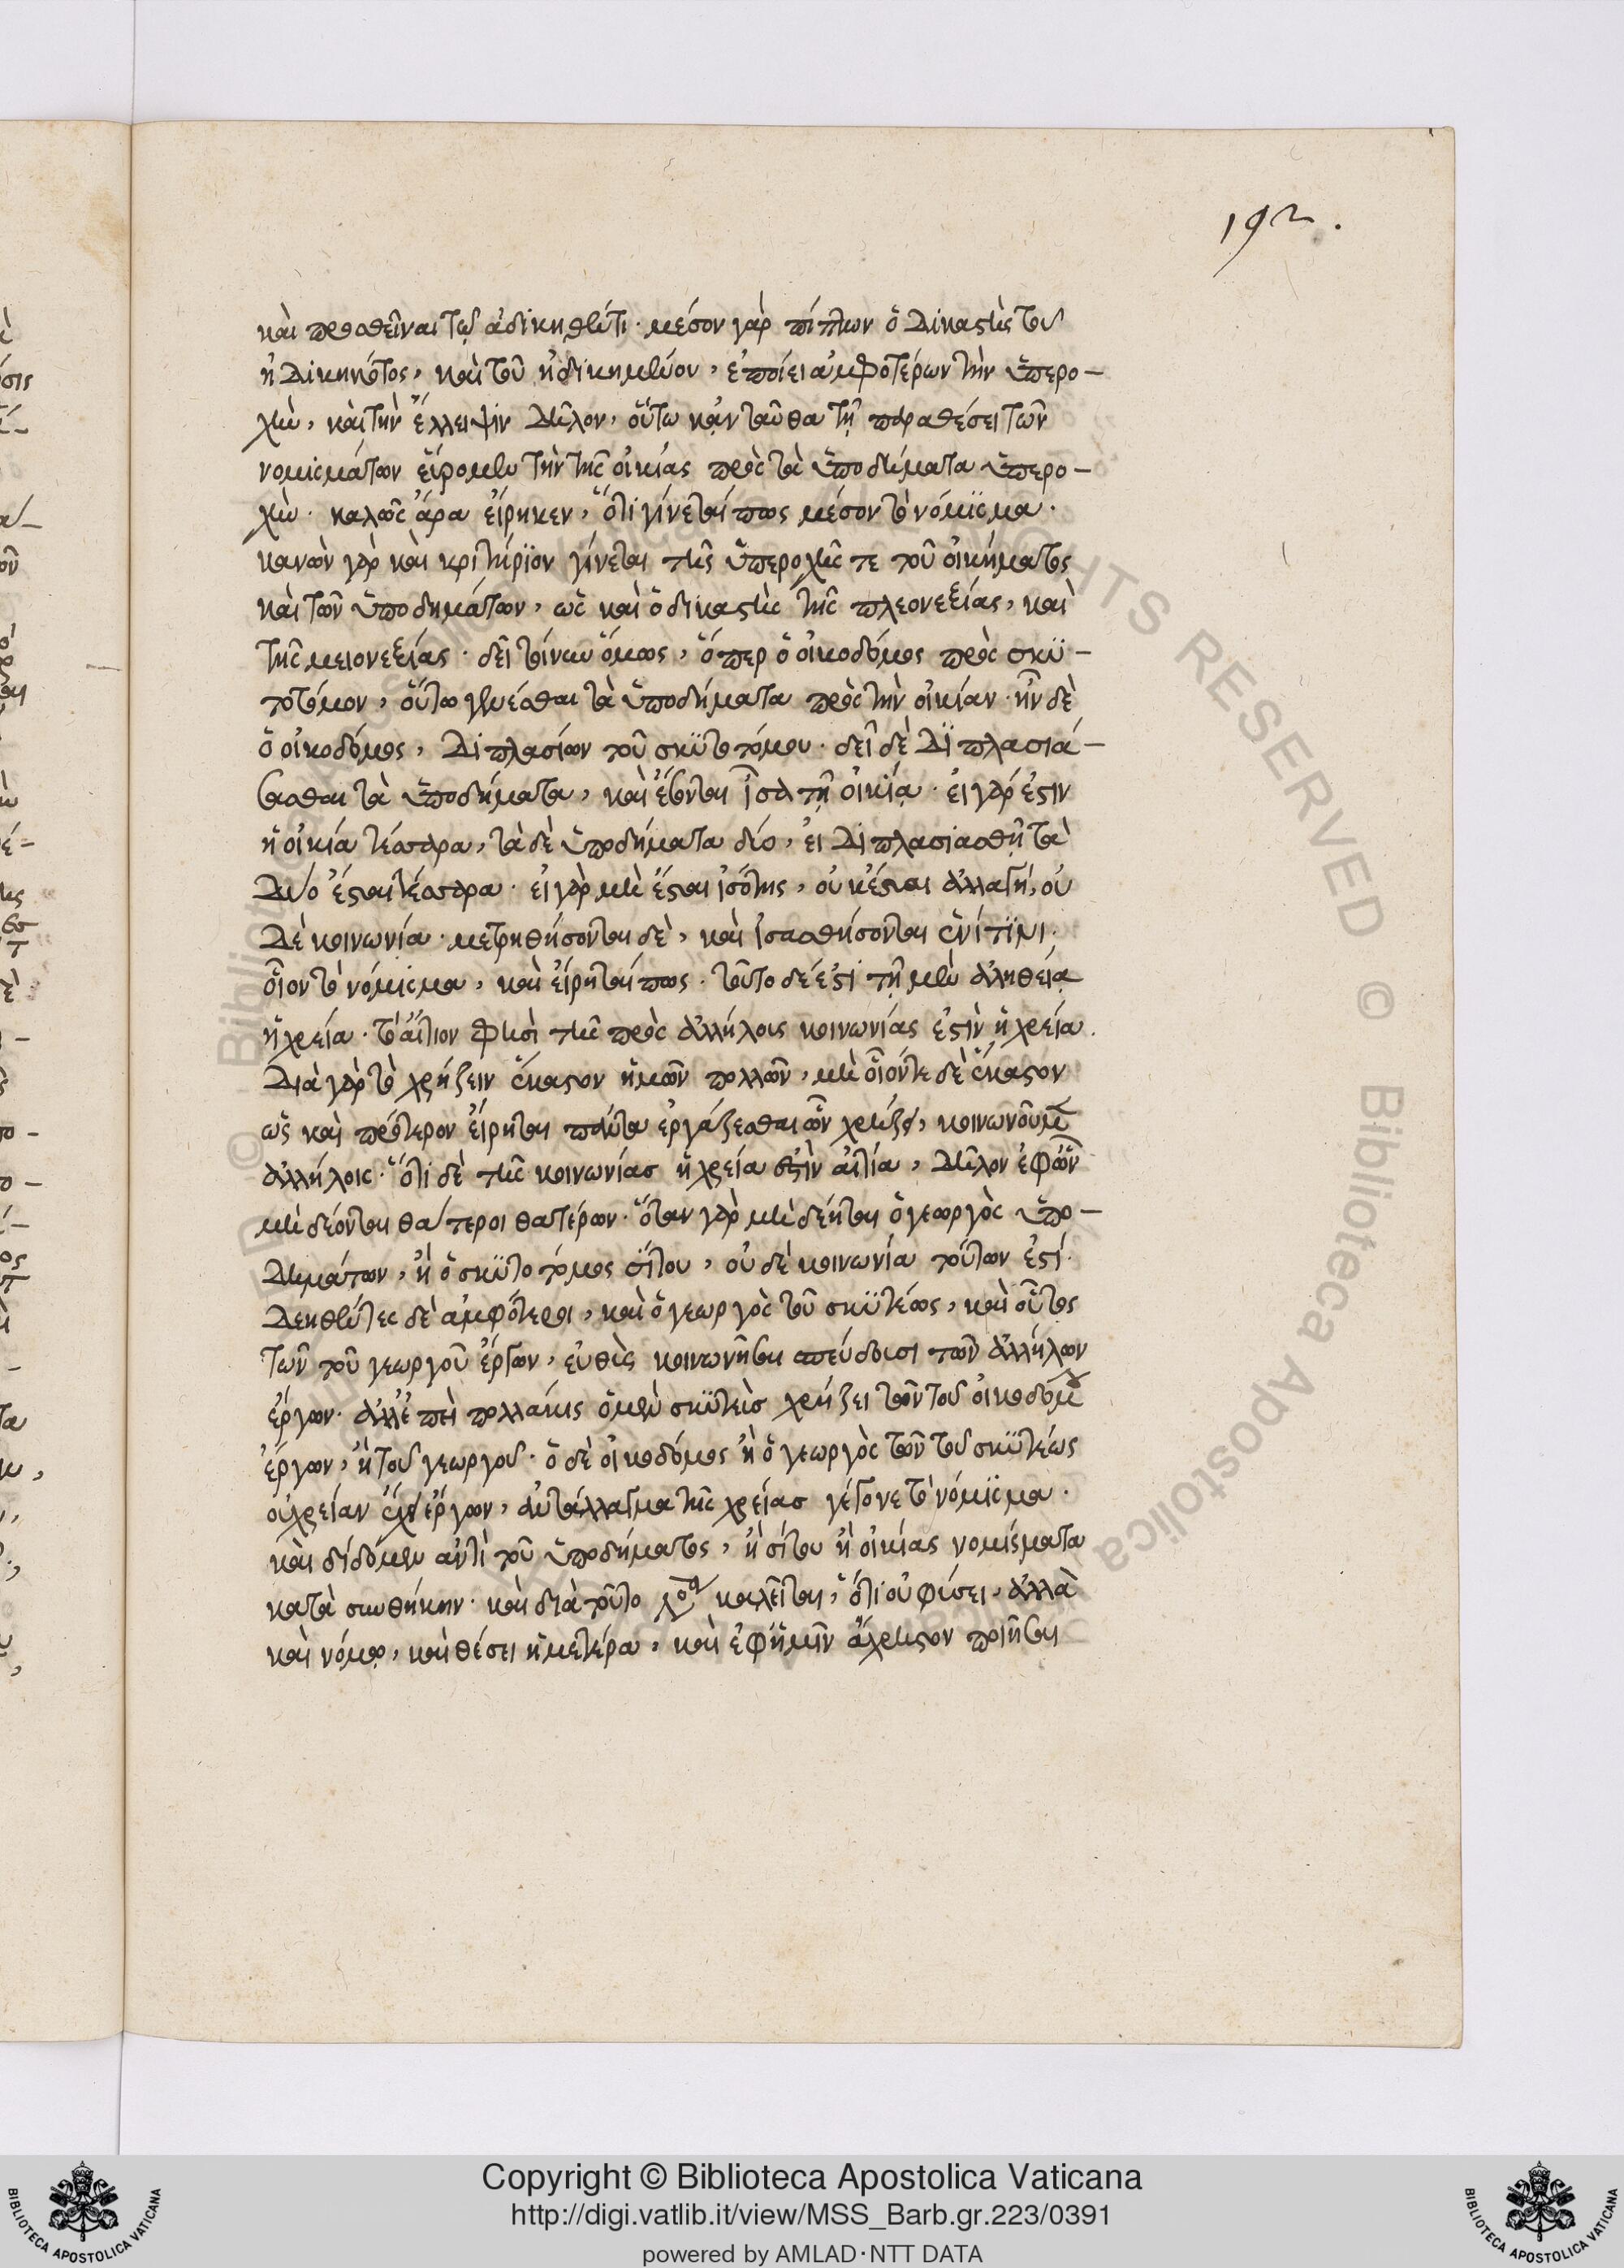 192.
καὶ προσθεῖναι τῷ ἀδικηθέντι· μέσον γὰρ πίπτων ὁ δικαστὴς τοῦ
ἠδικηκότος, καὶ τοῦ ἠδικημένου, ἐποίει ἀμφοτέρων τὴν ὑπερο-
χὴν, καὶ τὴν ἔλλειψιν δῆλον, οὕτω κἀνταῦθα τῇ παραθέσει τῶν
νομισμάτων εὕρομεν τὴν τῆς οἰκίας πρὸς τὰ ὑποδήματα ὑπερο-
χὴν. καλῶς ἄρα εἴρηκεν, ὅτι γίνεταί πως μέσον τὸ νόμισμα.
κανὼν γὰρ καὶ κριτήριον γίνεται τῆς ὑπεροχῆς τε τοῦ οἰκήματος
καὶ τῶν ὑποδημάτων, ὡς καὶ ὁ δικαστὴς τῆς πλεονεξίας, καὶ
τῆς μειονεξίας. δεῖ τοίνυν ὅμως, ὅπερ ὁ οἰκοδόμος πρὸς σκυ-
τοτόμον, οὕτω γενέσθαι τὰ ὑποδήματα πρὸς τὴν οἰκίαν. ἦν δὲ
ὁ οἰκοδόμος, διπλασίων τοῦ σκυτοτόμου. δεῖ δὲ διπλασιά-
σασθαι τὰ ὑποδήματα, καὶ ἔσονται ἴσα τῇ οἰκίᾳ. εἰ γάρ ἐστιν
ἡ οἰκία τέσσαρα, τὰ δὲ ὑποδήματα δύο, εἰ διπλασιασθῇ τὰ
δύο ἔσται τέσσαρα. εἰ γὰρ μὴ ἔσται ἰσότης, οὐκ ἔσται ἀλλαγή, οὐ
δὲ κοινωνία. μετρηθήσονται δὲ, καὶ ἰσασθήσονται ἑνί τινι.
οἷον τὸ νόμισμα, καὶ εἴρηταί πως. τοῦτο δέ ἐστι τῇ μὲν ἀληθείᾳ
ἡ χρεία. τὸ αἴτιον φησὶ τῆς πρὸς ἀλλήλοις κοινωνίας ἐστὶν ἡ χρεία.
διὰ γὰρ τὸ χρήζειν ἕκαστον ἡμῶν πολλῶν, μὴ οἷόν τε δὲ ἕκαστον
ὡς καὶ πρότερον εἴρηται πάντα ἐργάζεσθαι ὧν χρήζει, κοινωνοῦμεν
ἀλλήλοις. ὅτι δὲ τῆς κοινωνίας ἡ χρεία ἐστὶν αἰτία, δῆλον ἐφ ὧν
μὴ δέονται θάτεροι θατέρων. ὅταν γὰρ μὴ δέηται ὁ γεωργὸς ὑπο-
δημάτων, ἢ ὁ σκυτοτόμος σίτου, οὐδὲ κοινωνία τούτων ἐστί.
δεηθέντες δὲ ἀμφότεροι, καὶ ὁ γεωργὸς τοῦ σκυτέως, καὶ οὗτος
τῶν τοῦ γεωργοῦ ἔργων, εὐθὺς κοινωνῆσαι σπεύδουσι τῶν ἀλλήλων
ἔργων. ἀλλ ἐπεὶ πολλάκις ὁ μὲν σκυτεὺς χρήζει τῶν τοῦ οἰκοδόμου
ἔργων, ἢ τοῦ γεωργοῦ. ὁ δὲ οἰκοδόμος ἢ ὁ γεωργὸς τῶν τοῦ σκυτέως
οὐ χρείαν ἔχει ἔργων, ἀντάλλαγμα τῆς χρείας γέγονε τὸ νόμισμα.
καὶ δίδομεν ἀντὶ τοῦ ὑποδήματος, ἢ σίτου ἢ οἰκίας νομίσματα
κατὰ συνθήκην. καὶ διὰ τοῦτο καλεῖται, ὅτι οὐ φύσει, ἀλλὰ
καὶ νόμῳ, καὶ θέσει ἡμετέρα, καὶ ἐφ ἡμῖν ἄχρηστον ποιῆσαι
Copyright © Biblioteca Apostolica Vaticana
http://digi.vatlib.it/view/MSS_Barb.gr.223/0391
powered by AMLAD·NTT DATA